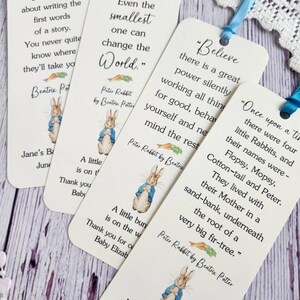 about writing the
first words
of a story.
You never quite
know where
they'll take you
Beatrix Potter
Jane's Ba
June
Even the
smallest
one can
change the
World."
Peter Rabbit
by Beatrix Potter
A little bu
is on the w
Thank you for
Baby Eliza
"Believe
there is a great
power silently
working all thin
for good, behav
yourself and ne
mind the rest
Peter Rabbit by Beatrix
A little bun
is on the wa
Thank you for ce
Baby Elizab
"Once upon a
there were four
little Rabbits, and
their names were-
Flopsy, Mopsy,
Cotton-tail and Peter.
They lived with
their Mother in a
sand-bank, underneath
the root of a
very big fir-tree."
Peter Rabbit by Beatrix Potter